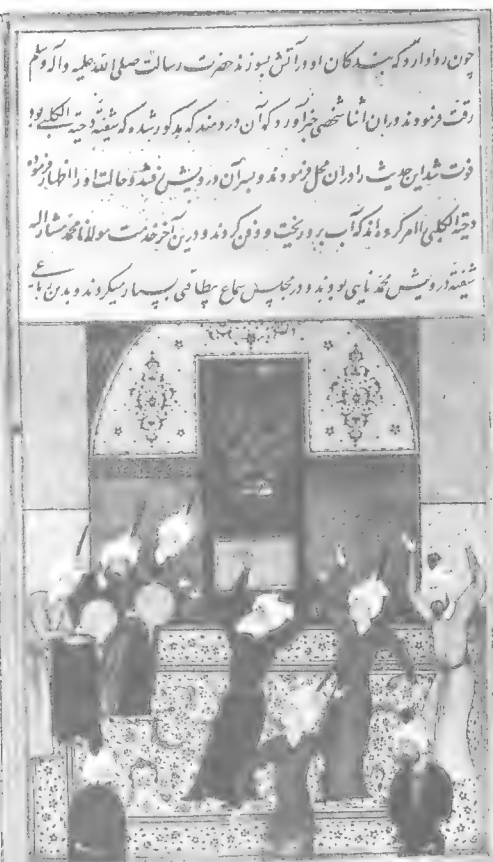 چون روا دارد که بندگان او در آتش بسوزند حضرت رسالت صلی الله علیه وآله وسلم
رقت فرمودند در آن اثنا شخصی خبر آورد که آن دردمند که مذکور شده که شیفتهٔ دحیة الکلبی بود
فوت شد این حدیث را در آن محل فرمودند و بسر آن درویش رفتند و حالت او را اظهار فرمو
دحیة الکلبی را امر کرده‌اند که آب برو ریخت و دفن کردند و درین آخر خدمت مولانا محمد مشارالیه
شیفتهٔ درویش محمد نایی بودند و در مجلس سماع بیطاقتی بسیار میکردند و بدین رباعی